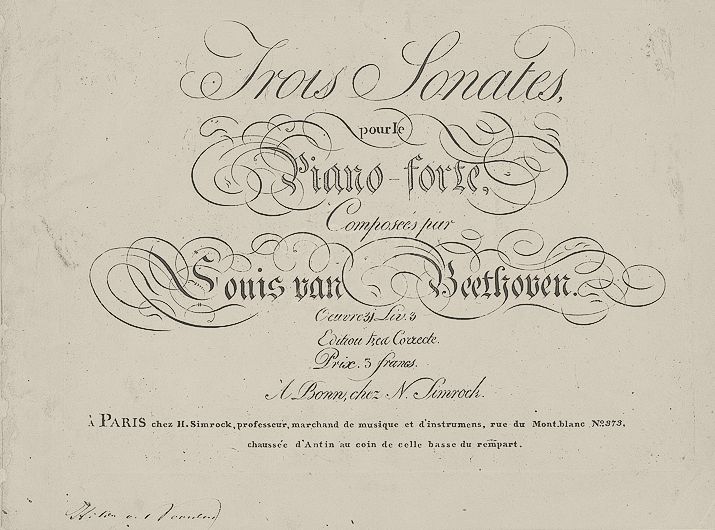 Trois Sonates,
pour le
Piano-forte,
Composeés par
Louis van Beethoven.
Oeuvre 31 Liv. 3
Edition tres Correcte.
Prix. 3 francs.
À Bonn, chez N. Simrock.
à PARIS chez H. Simrock, professeur, marchand de musique et d'instrumens, rue du Mont.blanc No. 373.
chaussée d'Antin au coin de celle basse du rempart.